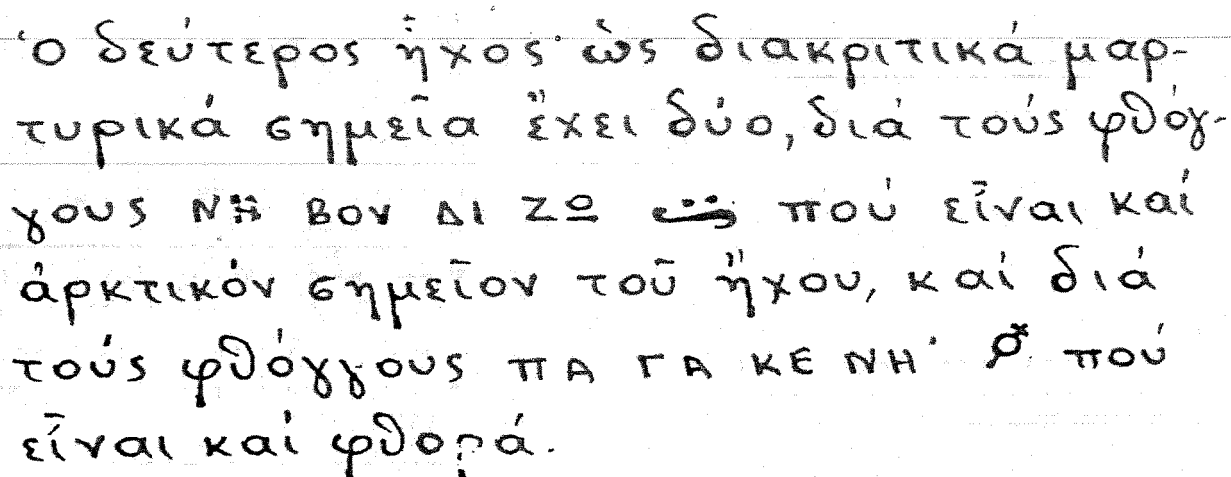 Ὁ δεύτερος ἦχος ὡς διακριτικά μαρ-
τυρικά σημεῖα ἔχει δύο, διά τούς φθόγ-
γους ΝΗ ΒΟΥ ΔΙ ΖΩ πού εἶναι καί
ἀρκτικόν σημεῖον τοῦ ἤχου, καί διά
τούς φθόγγους ΠΑ ΓΑ ΚΕ ΝΗ' πού
εἶναι καί φθορά.